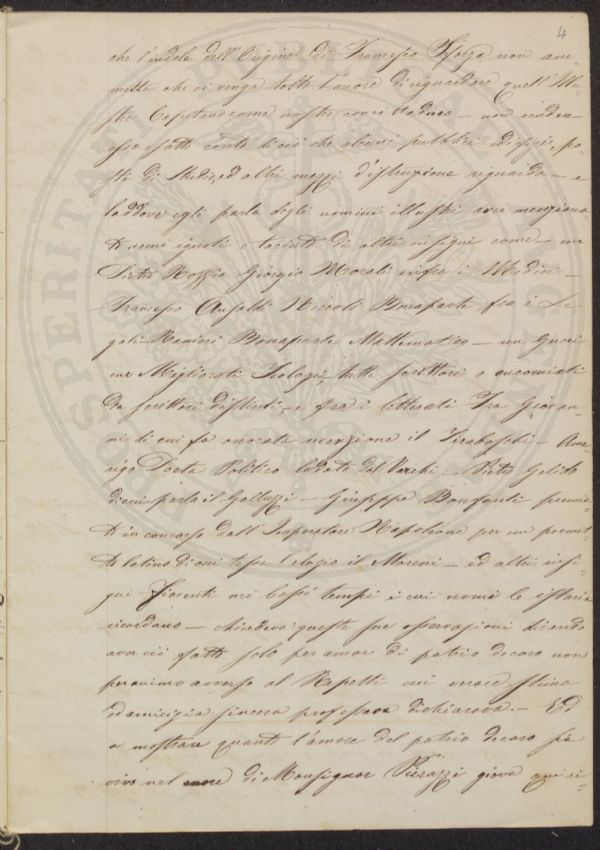 4
che l'indole dell'Origine di Francesco Sforza non am-
mette che ci venga tolto l'onore di riguardare quell'Il-
stre Capitano come nostro concittadino — non
esso esatto conto di ciò che alcuni pubblici edifizi, po-
sti di Studio, ed altri mezzi d'istruzione riguarda — e
laddove egli parla degli uomini illustri aver menziona-
ti nomi ignoti e taciuti di altri insigni come — un
Pietro Giorgio Morali infra i Medici —
Francesco Ansaldi Niccolò Bonaparte fra i Le-
gali Ranieri Bonaparte Mattematico — un
Migliorati Teologi, tutti scrittori o encomiati
da scrittori distinti — e fra i letterati Fra Giovan-
ni di cui fa onorata menzione il Tiraboschi — Ame-
rigo Politico lodato dal Varchi — Pietro
di cui parla il Galluzzi — Giuseppe Bonfanti premia-
to in concorso dall'Imperatore Napoleone per un poemet-
to latino di cui tesse l'elogio il Moreni — ed altri insi-
gni fiorenti nei bassi tempi i cui nomi le istorie
ricordano — chiudeva queste sue osservazioni dicendo
aver ciò fatto solo per amore di patrio decoro non
per animo avverso al Repetti cui verace stima
ed amicizia sincera professare dichiarava. — Ed
a mostrare quanto l'amore del patrio decoro sia
vivo nel cuore di Monsignor giova qui ri-